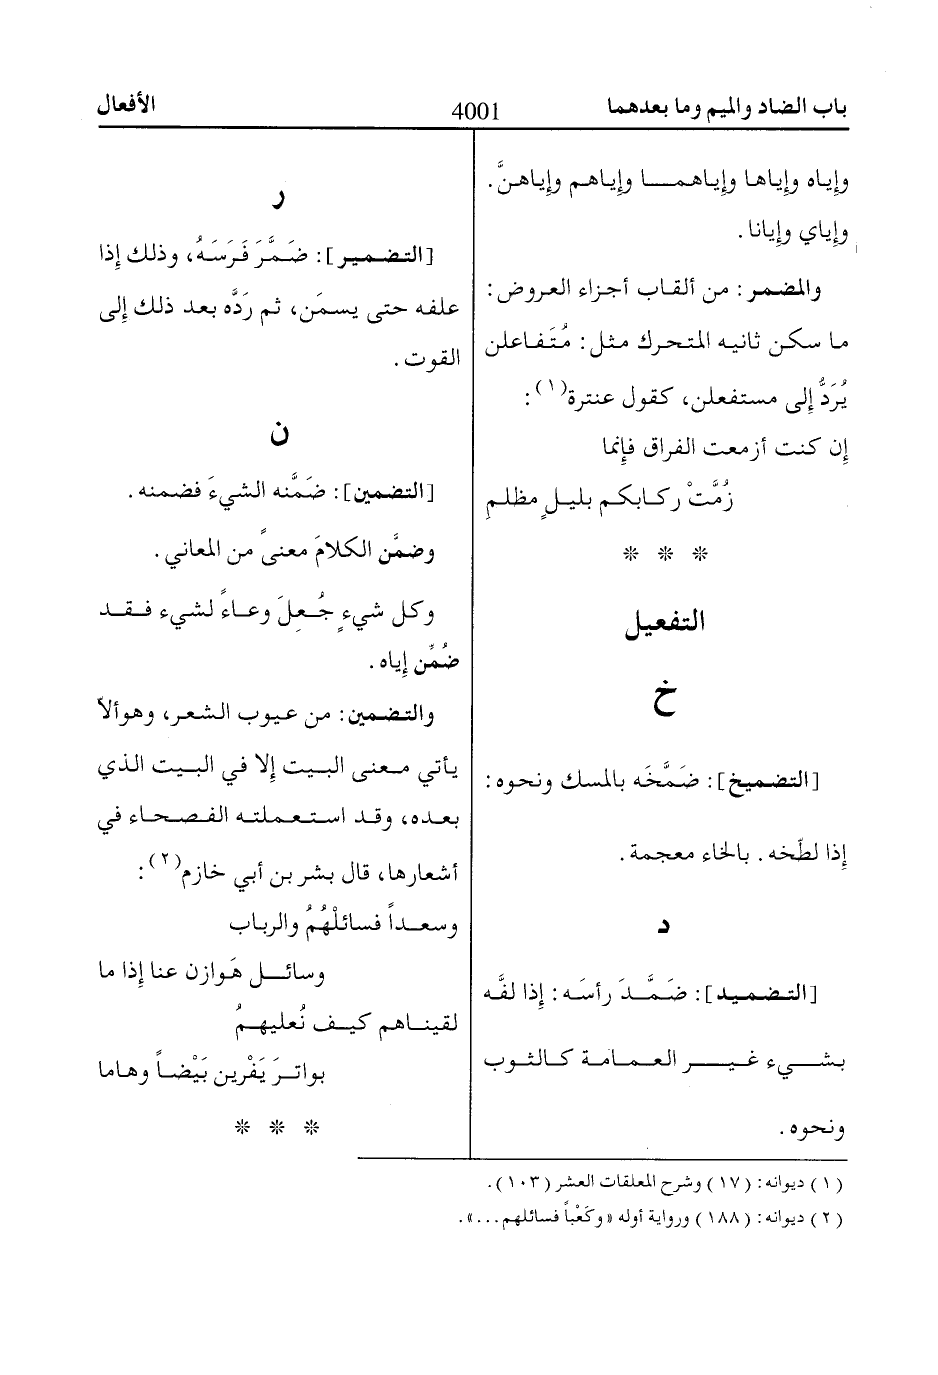 باب الضاد والميم وما بعدهما
4001
الأفعال
وإياه وإياها وإياهمـــا وإياهم وإياهنَّ.
وإياي وإيانا.
والمضمر: من ألقاب أجزاء العروض:
ما سكن ثانيه المتحرك مثل: مُتَفاعلن
يُرَدُّ إلى مستفعلن، كقول عنترة(١):
إن كنت أزمعت الفراق فإنما
زُمَّتْ ركابكم بليلٍ مظلمِ
* * *
التفعيل
خ
[التضميخ]: ضَمَّخَه بالمسك ونحوه:
إذا لطّخه. بالخاء معجمة.
د
[التضميد]: ضَمَّدَ رأسَه: إذا لفَّه
بشيء غير العمامة كالثوب
ونحوه.
ر
[التضمير]: ضَمَّرَ فَرَسَهُ، وذلك إذا
علفه حتى يسمَن، ثم رَدَّه بعد ذلك إلى
القوت.
ن
[التضمين]: ضَمَّنه الشيءَ فضمنه.
وضمَّن الكلامَ معنىً من المعاني.
وكل شيءٍ جُعلَ وعاءً لشيء فقد
ضُمِّن إياه.
والتضمين: من عيوب الشعر، وهوألاّ
يأتي معنى البيت إلا في البيت الذي
بعده، وقد استعملته الفصحاء في
أشعارها، قال بشر بن أبي خازم(٢):
وسعداً فسائلْهُمُ والرباب
وسائل هَوازن عنا إذا ما
لقيناهم كيف نُعليهمُ
بواترَ يَفْرين بَيْضاً وهاما
* * *
(١) ديوانه: (١٧) وشرح المعلقات العشر (١٠٣).
(٢) ديوانه: (١٨٨) ورواية أوله «وكَعْباً فسائلهم...».